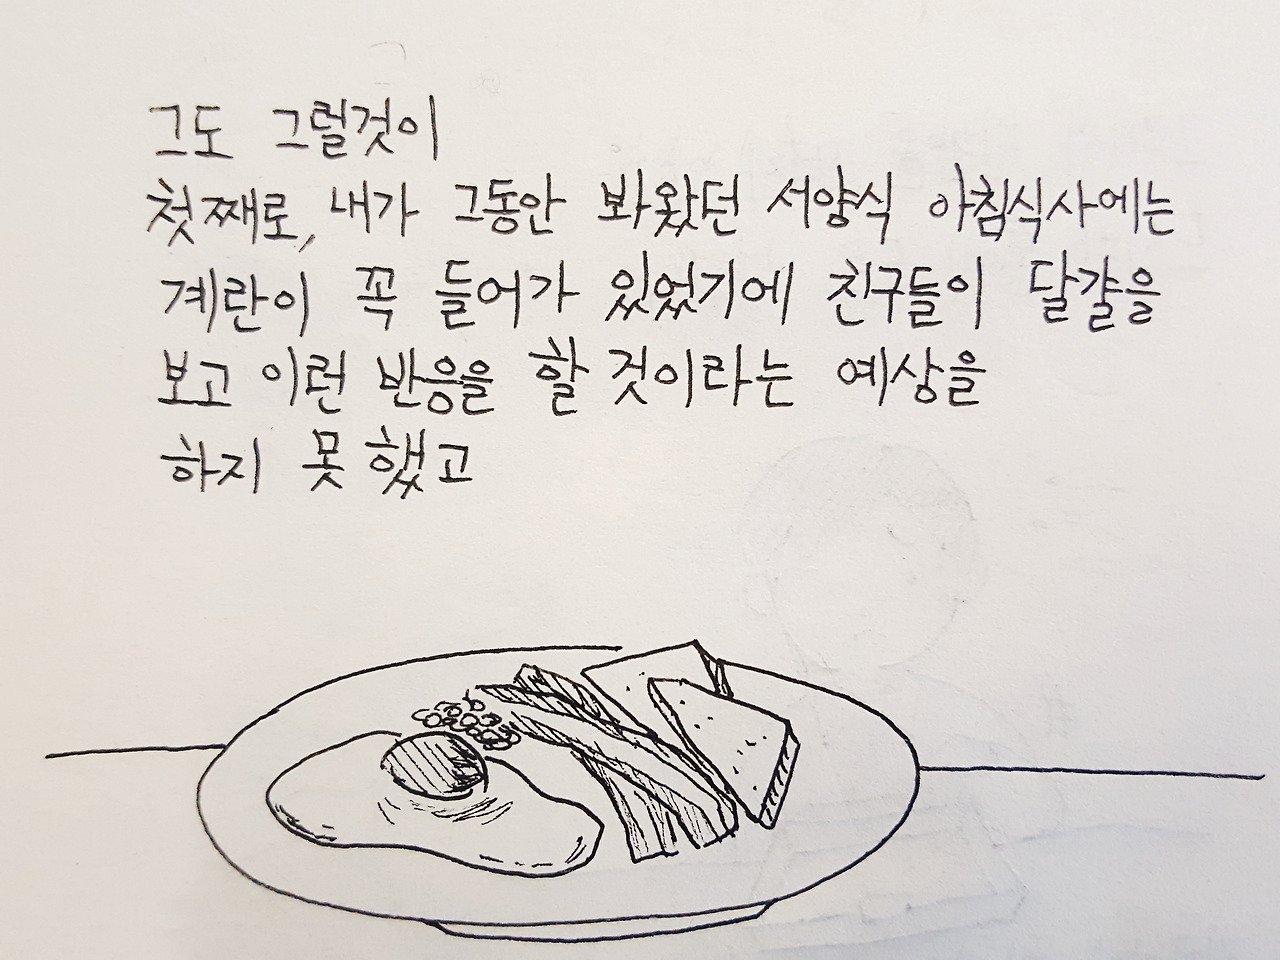 그도 그럴것이
첫째로, 내가 그동안 봐왔던 서양식 아침식사에는
계란이 꼭 들어가 있었기에 친구들이 달걀을
보고 이런 반응을 할 것이라는 예상을
하지 못 했고